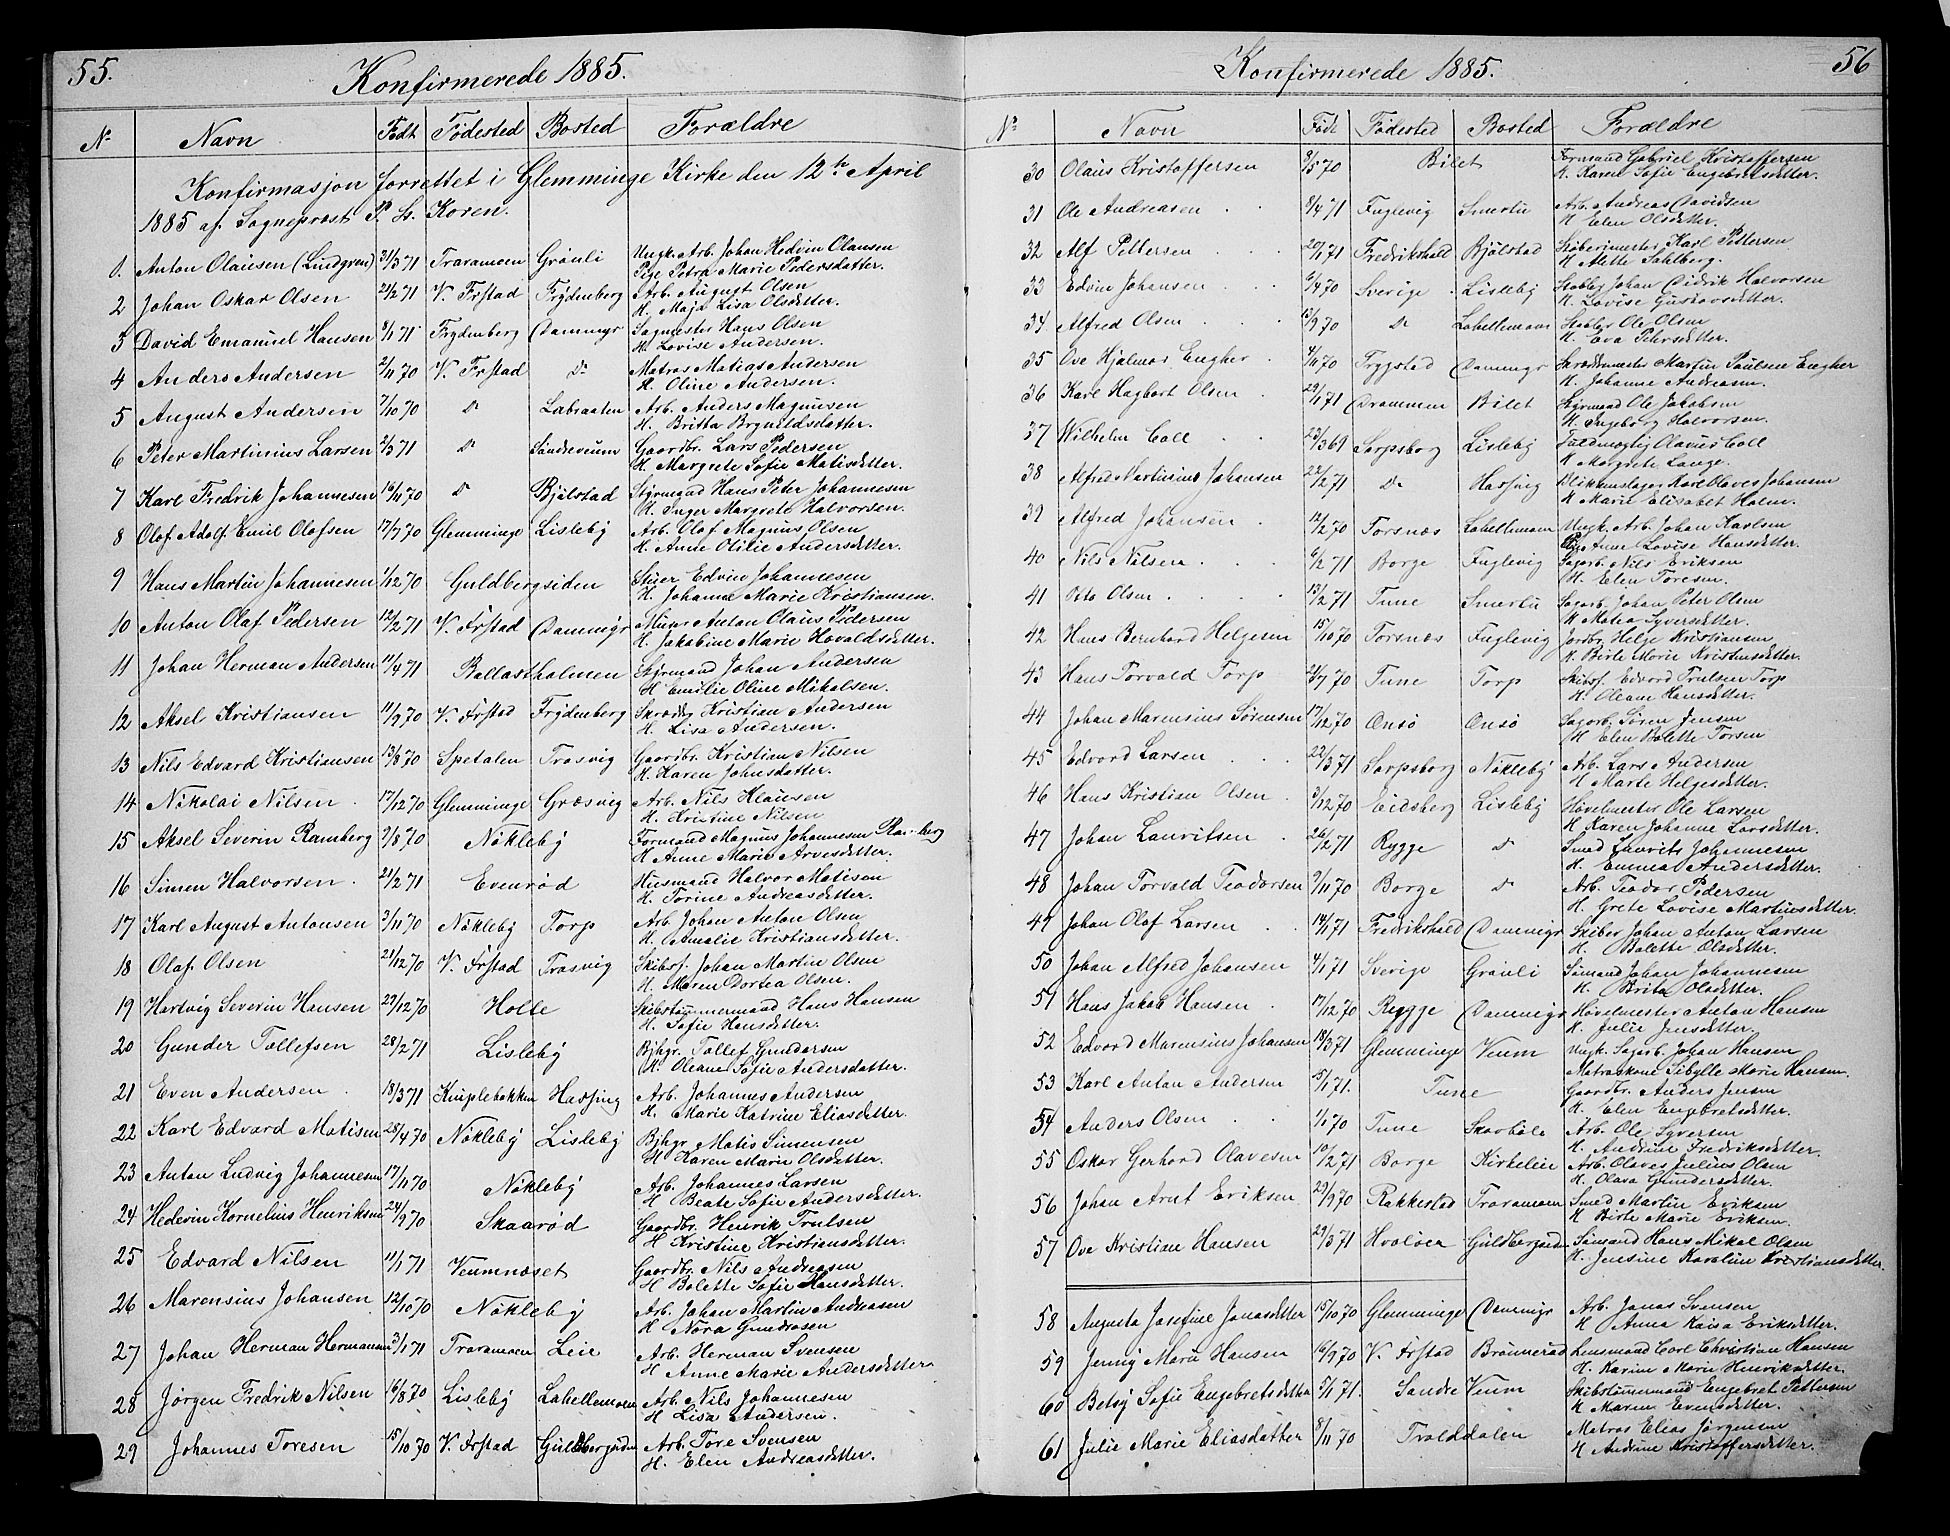 55.
Konfirmerede 1885.
No Navn Født Fødested Bosted Forældre
Konfirmasjon forrettet i Glemminge Kirke den 12te April
1885 af Sogneprost P. L. Koren.
1. Anton Olausen (Lindgren) 31/3 71 Traramoen Grånli Ungk. Arb. Johan Hedvin Olausen
Pige Petra Marie Pedersdatter.
2 Johan Oskar Olsen 21/2 71 V. Frstad Frydenberg Arb. August Olsen
H. Maja Lisa Olsdatter.
3 David Emanuel Hansen 8/1 71 Frydenberg Dammyr Sagmester Hans Olsen
H. Lovise Andersen.
4 Anders Andersen 2/11 70 V. Frstad Do Matros Matias Andersen
H. Oline Andersen.
5 August Andersen 7/10 70 Do Labraaten Arb. Anders Magnusen
H. Britta Brynildsdatter.
6 Peter Martinius Larsen 2/3 71 Do Sandreveum Gaardbr. Lars Pedersen
H. Margrete Sofie Matisdatter.
7 Karl Fredrik Johannesen 16/11 70 Do Bjølstad Styrmand Hans Peter Johannesen
H. Inger Margrete Halvorsen.
8 Olaf Adolf Emil Olafsen 17/7 70 Glemminge Lisleby Arb. Olaf Magnus Olsen
H. Anne Otilie Andersdatter.
9 Hans Martin Johannesen 1/12 70 Guldbergsiden Stuer Edvin Johannesen
H. Johanne Marie Kristiansen.
10 Anton Olaf Pedersen 12/2 71 V. Frstad Dammyr Murer Anton Olaus Pedersen
H. Jakobine Marie Hovaldsdatter.
11 Johan Herman Andersen 11/4 71 Ballastholmen Styrmand Johan Andersen
H Emilie Oline Mikalsen.
12 Aksel Kristiansen 11/9 70 V. Frstad Frydenberg Skrædder Kristian Andersen
H. Lisa Andersen.
13 Nils Edvard Kristiansen 13/8 70 Spetalen Trosvig Gaardbr. Kristian Nilsen
H. Karen Johnsdatter.
14 Nikolai Nilsen 17/12 70 Glemminge Græsvig Arb. Nils Klausen
H. Kristine Nilsen
15 Aksel Severin Ramberg 7/8 70 Nøkleby Formand Magnus Johannesen Ramberg
H Anne Marie Arvesdatter.
16 Simen Halvorsen 21/2 71 Evenrød Husmand Halvor Matisen
H. Torine Andreasdatter.
17 Karl August Antonsen 3/11 70 Nøkleby Torp Arb. Johan Anton Olsen
H. Amalie Kristiansdatter.
18 Olaf Olsen 21/12 70 V. Frstad Trosvig Skibsf. Johan Martin Olsen
H. Maren Dortea Olsen.
19 Hartvig Severin Hansen 29/12 70 Holte Skibstømmermand Hans Hansen
H. Sofie Hansdatter.
20 Gunder Tollefsen 28/2 71 Lisleby Bjhgr. Tollef Gundersen
H. Oleane Sofie Andersdatter.
21 Even Andersen 18/3 71 Kniplebakken Hassing Arb. Johannes Andersen
H. Marie Katrine Eliasdatter.
22 Karl Edvard Matisen 28/4 70 Nøkleby Lisleby Bjhgr. Matis Simensen
H Karen Marie Olsdatter.
23 Anton Ludvig Johannesen 17/11 70 Nøkleby Arb. Johannes Larsen
H Beate Sofie Andersdatter.
24 Hedevin Kornelius Henriksen 24/9 70 Skaarød Gaardbr. Henrik Trulsen
H Kristine Kristiansdatter.
25 Edvard Nilsen 11/1 71 Veumnæset Gaardbr. Nils Andreasen
H Bolette Sofie Hansdatter.
26 Marensius Johansen 12/10 70 Nøkleby Arb. Johan Martin Andreasen
H Nora Gundrosen
27 Johan Herman Hermansen 3/1 71 Traramoen Leie Arb. Herman Svensen
H Anne Marie Andersdatter
28 Jørgen Fredrik Nilsen 16/8 70 Lisleby Lahellemoen Arb. Nils Johannesen
H Lisa Andersen.
29 Johannes Toresen 15/10 70 V. Frstad Guldbergsiden Arb. Tore Svensen
H. Elen Andreasdatter.
Konfirmerede 1885.
56
No Navn Født Fødested Bosted Forældre
30 Olaus Kristoffersen 9/5 70 Bilet Formand Gabriel Kristoffersen
H. Karen Sofie Engebretsdatter.
31 Ole Andreasen 8/4 71 Fuglevig Smertu Arb. Andreas Davidsen
H Elen Olsdatter.
32 Alf Pettersen 20/1 71 Fredrikshald Bjølstad Støberimester Karl Pettersen
H Alette Sahlberg.
33 Edvin Johansen 6/4 70 Sverige Lisleby Stabler Johan Didrik Halvorsen
H. Lovise Gustavsdatter.
34 Alfred Olsen 13/9 70 Do Lahellemoen Stabler Ole Olsen
H. Eva Petersdatter.
35 Ove Hjalmar Engher 4/11 70 Trygstad Dammyr Skræddermester Martin Paulsen Engher
H. Johanne Andreasen.
36 Karl Hagbart Olsen 29/1 71 Drammen Bilet Styrmand Ole Jakobsen
H. Ingeborg Halvorsen.
37 Wilhelm Coll 23/3 69 Sarpsborg Lisleby Fuldmægtig Olavus Coll
H Margrete Lange.
38 Alfred Martinius Johansen 22/2 71 Do Hassing Blikkenslager Karl Olaves Johansen
H Marie Elisabet Holm.
39 Alfred Johansen 12/2 70 Torsnæs Lahellemoen Ungk. Arb. Johan Karlsen
Pige Anne Lovise Hansdatter.
40 Nils Nilsen 6/2 71 Borge Fuglevig Sagarb. Nils Eriksen
H. Elen Toresen.
41 Otto Olsen 13/2 71 Tune Smertu Sagarb. Johan Peter Olsen
H Matea Syversdatter.
42 Hans Bernhard Helgesen 15/10 70 Torsnæs Fuglevig Jordbr. Helge Kristiansen
H. Birte Marie Kristensdatter.
43 Hans Torvald Torp 21/7 70 Tune Torp Skibsf. Edvard Trulsen Torp
H. Oleane Hansdatter.
44 Johan Marensius Sørensen 17/12 70 Onsø Onsø Sagarb. Søren Jensen
H Elen Bolette Torsen
45 Edvard Larsen 22/3 71 Sarpsborg Nøkleby Arb. Lars Andersen
H Marte Helgesdatter.
46 Hans Kristian Olsen 3/12 70 Eidsberg Lisleby Høvelmester Ole Larsen
H Karen Johanne Larsdatter.
47 Johan Lauritsen 26/2 71 Rygge Do Smed Laurits Johannesen
H. Emma Andersdatter.
48 Johan Torvald Teodorsen 9/11 70 Borge Do Arb. Teodor Pedersen
H. Grete Lovise Martinsdatter.
49 Johan Olaf Larsen 14/1 71 Fredrikshald Dammyr Skiber Johan Anton Larsen
H. Bolette Olsdatter.
50 Johan Alfred Johansen 4/1 71 Sverige Grånli Sømand Johan Johannesen
H. Brita Olsdatter.
51 Hans Jakob Hansen 17/12 70 Rygge Dammyr Høvelmester Anton Hansen
H. Julie Jensdatter.
52 Edvard Marensius Johansen 18/3 71 Glemminge Veum Ungk. Sagarb. Johan Hansen
Matroskone Sibylle Marie Hansen.
53 Karl Anton Andersen 15/1 71. Tune Gaardbr. Anders Jensen
H. Elen Engebretsdatter.
54 Anders Olsen 1/1 70 Tune Skovbøle Arb. Ole Syversen
H. Andrine Fredriksdatter.
55 Oskar Gerhard Olavesen 10/2 71 Borge Kirkeleie Arb. Olaves Julius Olsen
H. Olava Gundersdatter.
56 Johan Arnt Eriksen 29/9 70 Rakkestad Traramoen Smed Martin Eriksen
H Birte Marie Eriksen.
57 Ove Kristian Hansen 29/3 71 Hvaløer Guldbergsiden Sømand Hans Mikal Olsen
H. Jensine Karoline Kristiansdatter.
58 Augusta Josefine Jonasdatter 15/10 70 Glemminge Dammyr Arb. Jonas Svensen
H Anna Kaisa Eriksdatter.
59 Jenny Marie Hansen 16/9 70 V. Frstad Brønnerød Lensmand Carl Christian Hansen
H. Karine Marie Henriksdatter.
60 Betsy Sofie Engebretsdatter 5/1 71. Søndre Veum Skibstømermand Engebret Pettersen
H Maren Evensdatter.
61 Julie Marie Eliasdatter 8/11 70 Tralddalen Matros Elias Jørgensen
H Andrine Kristoffersdatter.